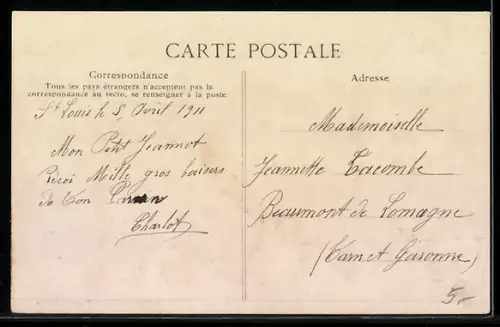 CARTE POSTALE
Correspondance
Tous les pays étrangers n'acceptent pas la
correspondance au recto, se renseigner à la poste
Adresse
St Louis le 5 Avril 1911
Mon Petit Jeannot
Reçoi Mille gros baisers
de ton
Charlot
Mademoiselle
Jeannette Lacombe
Beaumont de Lomagne
(Tarn et Garonne)
5.-